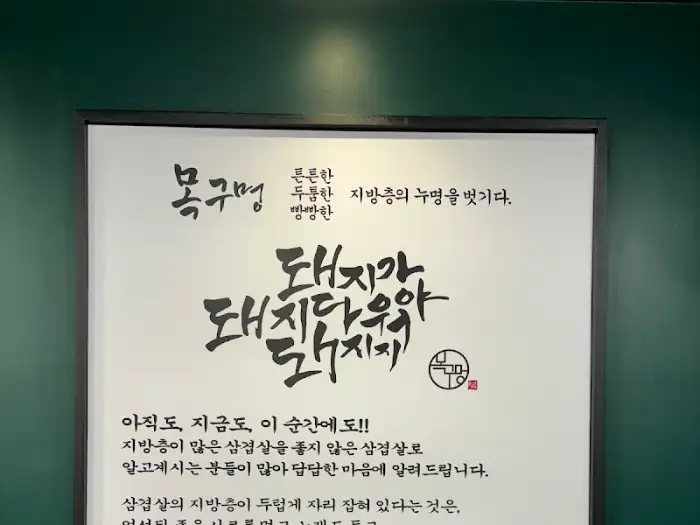 목구멍
튼튼한
두툼한
빵빵한
지방층의 누명을 벗기다.
돼지가
돼지다워야
돼지지
목구멍
아직도, 지금도, 이 순간에도!!
지방층이 많은 삼겹살을 좋지 않은 삼겹살로
알고계시는 분들이 많아 답답한 마음에 알려드립니다.
삼겹살의 지방층이 두럽게 자리 잡혀 있다는 것은,